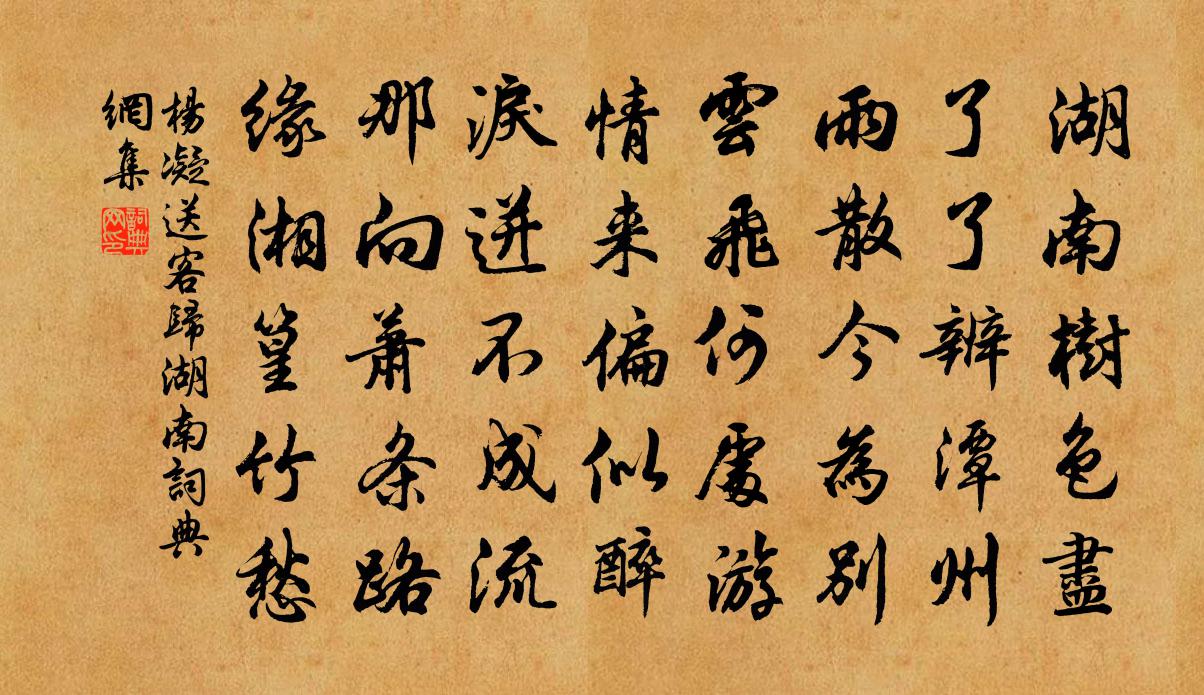 湖南樹色盡
了了辨潭州
雨散今為別
雲飛何處游
情来偏似醉
淚迸不成流
那向蕭条路
緣湘篁竹愁
楊凝送客歸湖南詞典
網集
詞典
网印